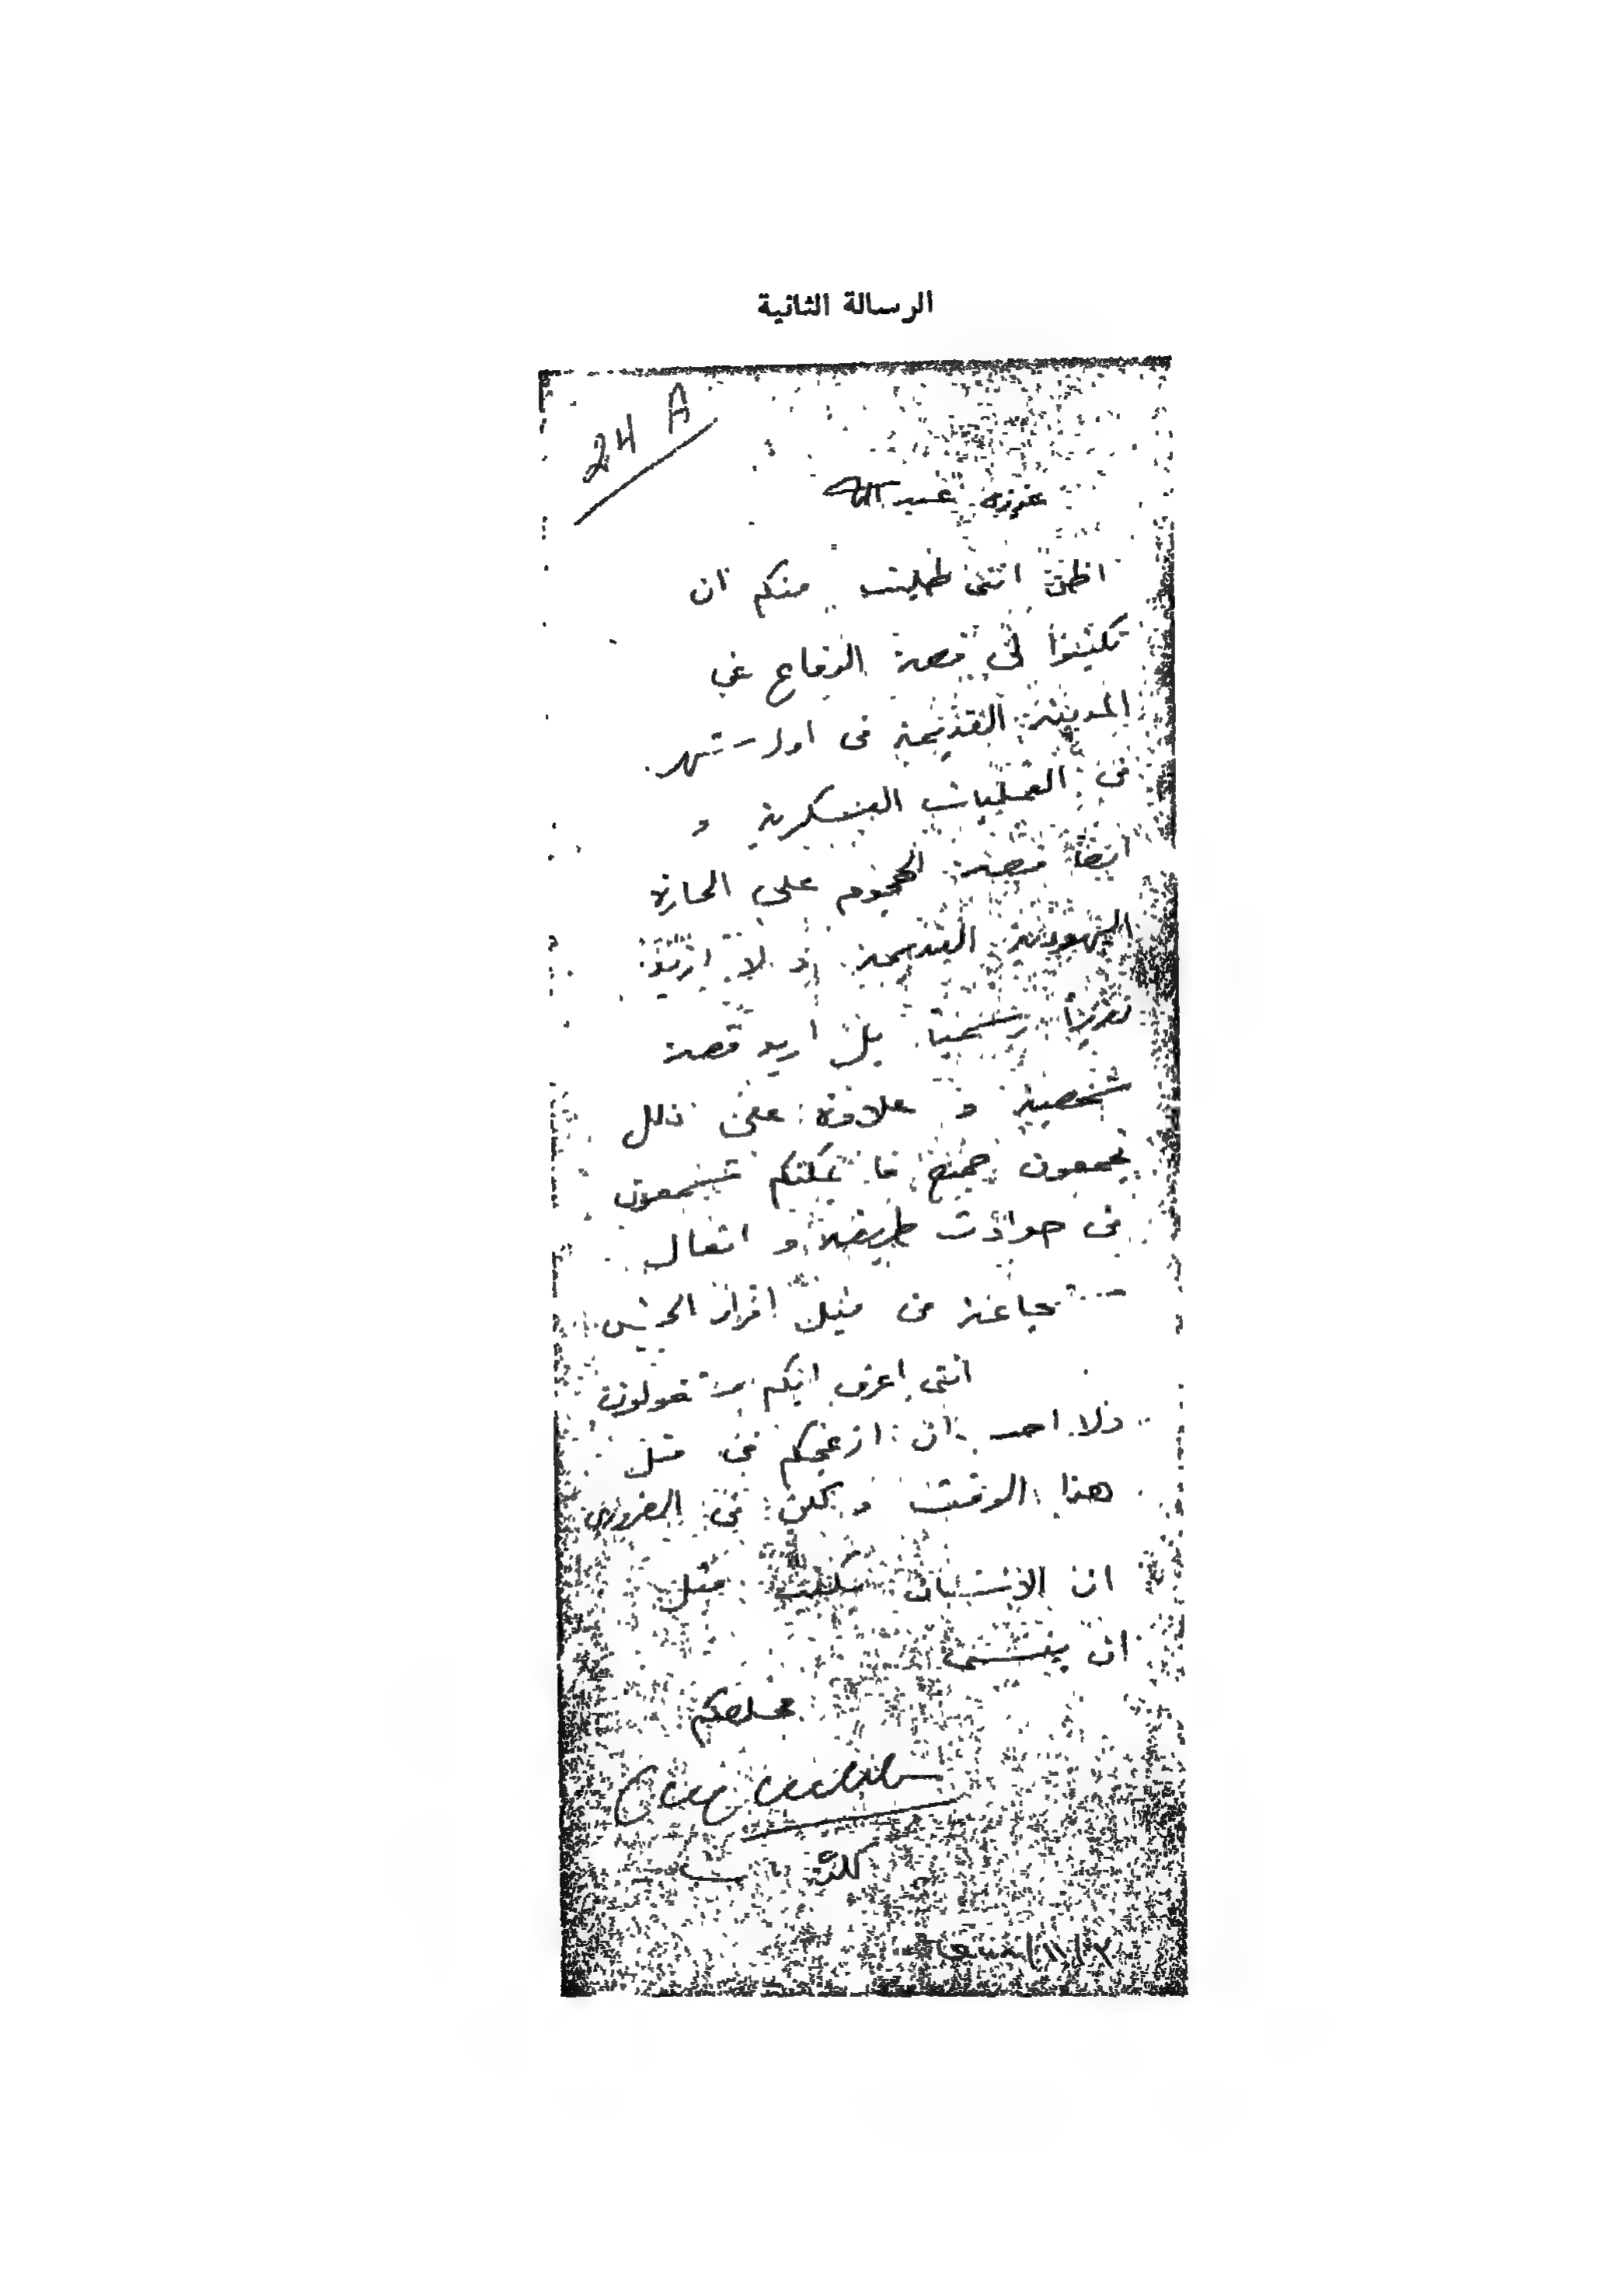 الرسالة الثانية
24 A
عزيزي عبد الله
اظن انني طلبت منكم ان
تكتبوا لي قصة الدفاع عن
المدينة القديمة في اول شهر
من العمليات العسكرية و
ايضاً قصة الهجوم على الحارة
اليهودية القديمة و لا اريد
تقريراً رسمياً بل اريد قصة
شخصية و علاوة على ذلك
تجمعون جميع ما يمكنكم تجمعون
من حوادث طريفة و افعال
شجاعة من قبل افراد الجيش
انني اعرف انكم مشغولون
ولا احب ان ازعجكم في مثل
هذا الوقت و لكن من الضروري
ان الانسان يكتب قبل
ان ينسى
مخلصكم
كلوب باشا